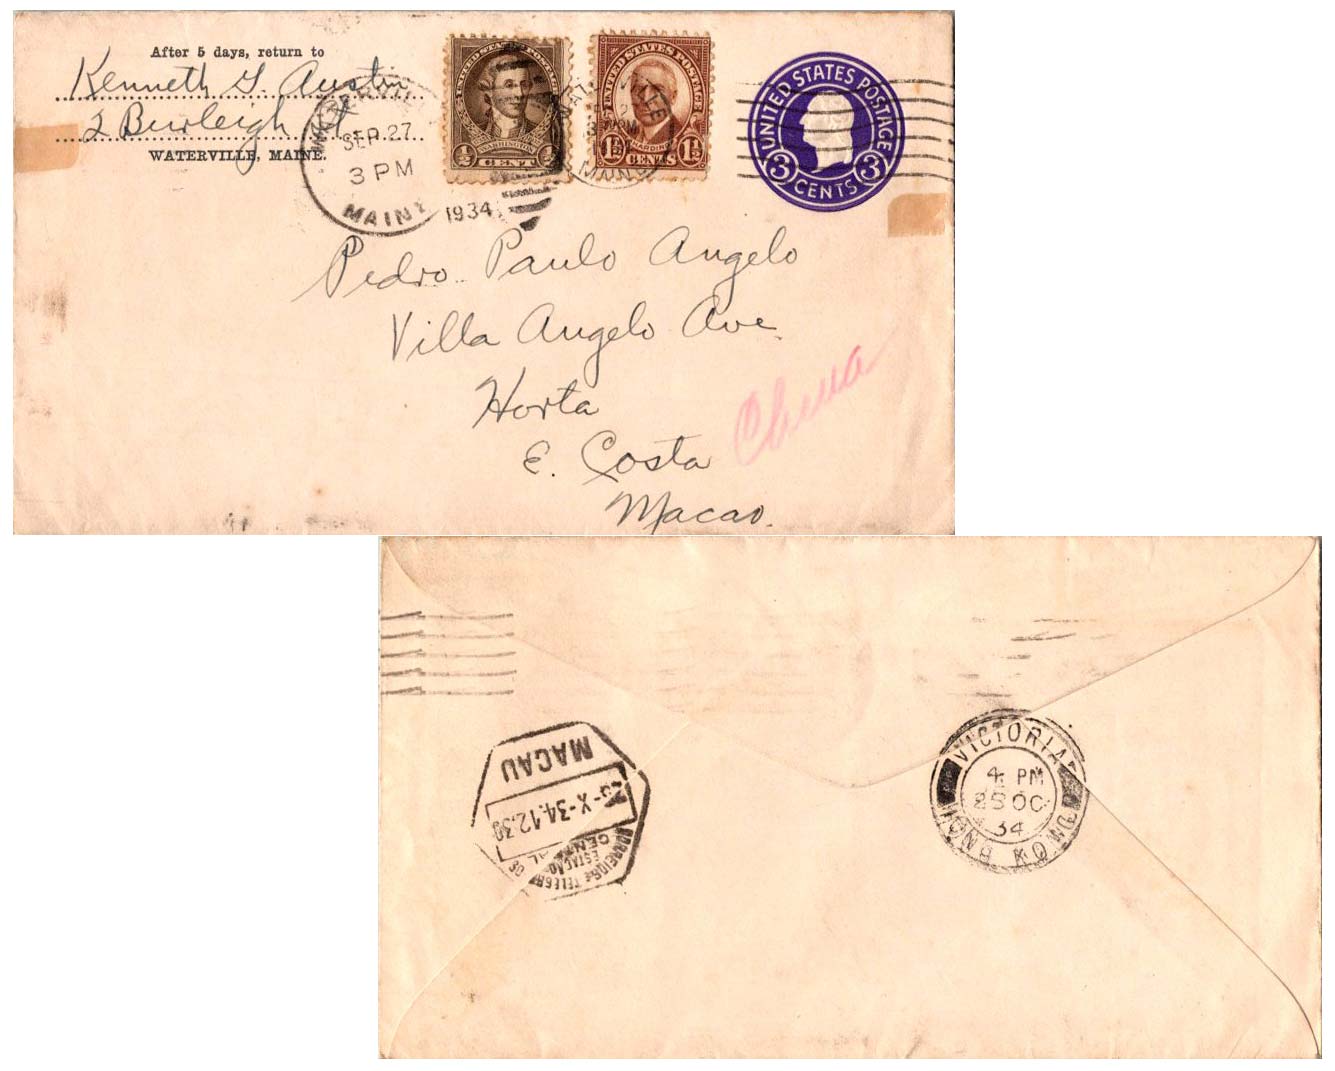 After 5 days, return to
Kenneth G. Austin
2 Burleigh St
WATERVILLE, MAINE.
SEP 27
3 PM
MAINE
1934
UNITED STATES POSTAGE
WASHINGTON
½ CENT ½
UNITED STATES POSTAGE
HARDING
1½ CENTS 1½
UNITED STATES POSTAGE
3 CENTS 3
Pedro Paulo Angelo
Villa Angelo Ave
Horta
E. Costa
Macao.
China
MACAU
-X-34.12.30
CORREIOS E TELEGR
ESTAÇÃO
CENTRAL
VICTORIA
4 PM
25 OC
34
HONG KONG